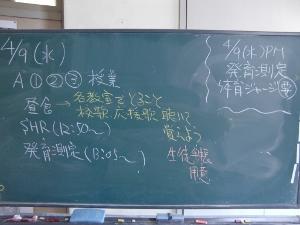 4/9(水)
A①②③ 授業
昼食→各教室でとること
校歌応援歌聴いて
覚えよう
SHR(12:50~)
発育測定(13:05~)
生徒手帳
用意
4/9(水)PM
発育測定
体育ジャージ